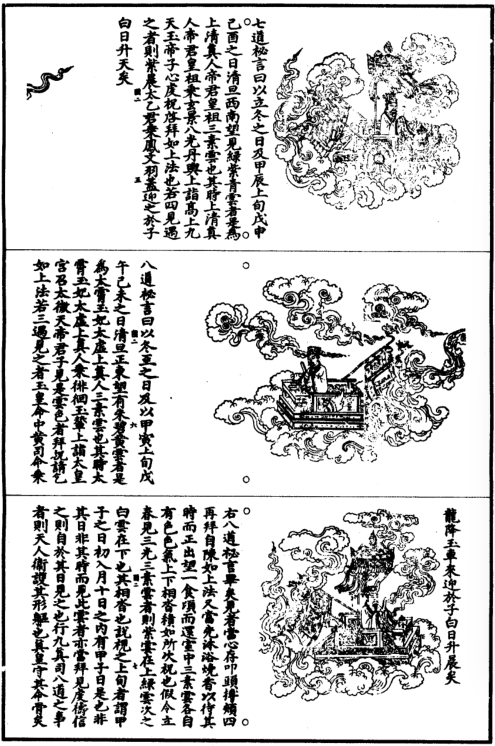 七道秘言曰以立冬之日及甲辰上旬戊申
己酉之日清旦西南望見綠紫青雲者是為
上清真人帝君皇祖三素雲也其時上清真
人帝君皇祖乘玄景八光丹輿上詣高上九
天玉帝子心度祝啓拜如上法也若四見遇
之者則紫虛太乙君乘鳳文羽蓋迎之於子
白日升天矣
圖二
五
八道秘言曰以冬至之日及以甲寅上旬戊
午己未之日清旦正東望有朱碧黃雲者是
為太霄玉妃太虛上真人三素雲也其時太
霄玉妃太虛上真人乘徘徊玉輦上詣太皇
宮召太微天帝君子見雲色者拜祝請乞
如上法若三過見之者玉皇命中黃司命乘
圖二
六
龍降玉車來迎於子白日升晨矣
右八道秘言畢矣見者當心存叩頭摶頰四
再拜自陳如上法又當先沐浴燒香以待其
時而正出望一食頃而還室中三素雲各自
有色色氣上下相沓積如所次祝也假令立
春見三光三素雲者則紫雲在上綠雲次之
白雲在下也其相沓也說視之上旬者謂甲
子之日初入月十日之內有甲子日是也非
其日非其時而見此雲者亦當拜見度儔信
之則自於其日見之也行九真司八道之事
者則天人衛護其形軀也真皇守其命骨矣
圖二
七